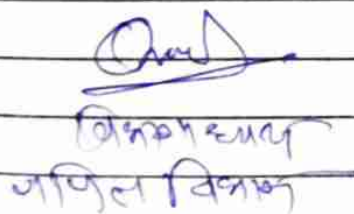 विभागाध्यक्ष
गणित विभाग